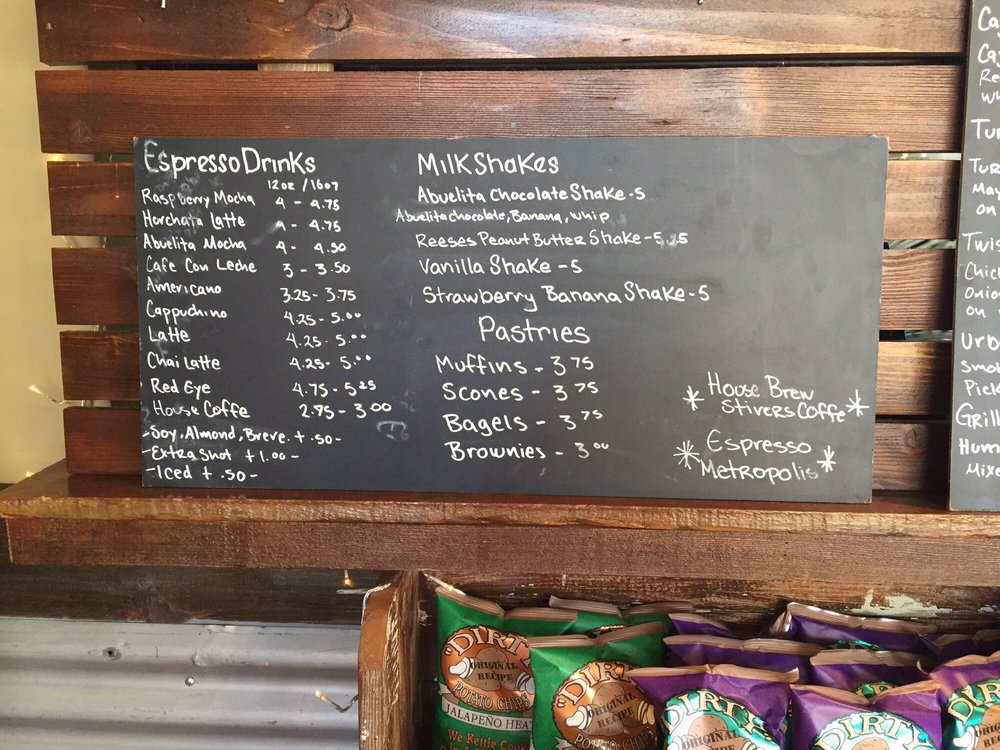 Espresso Drinks
12oz / 16oz
Raspberry Mocha 4 - 4.75
Horchata Latte 4 - 4.75
Abuelita Mocha 4 - 4.50
Cafe Con Leche 3 - 3.50
Americano 3.25 - 3.75
Cappuchino 4.25 - 5.00
Latte 4.25 - 5.00
Chai Latte 4.25 - 5.00
Red Eye 4.75 - 5.25
House Coffe 2.75 - 3.00
- Soy, Almond, Breve. + .50 -
- Extra Shot + 1.00 -
- Iced + .50 -
MilkShakes
Abuelita Chocolate Shake - 5
Abuelita chocolate, Banana, whip
Reeses Peanut Butter Shake - 5.25
Vanilla Shake - 5
Strawberry Banana Shake - 5
Pastries
Muffins - 3 75
Scones - 3 75
Bagels - 3 75
Brownies - 3 00
* House Brew
Stivers Coffe *
* Espresso
Metropolis *
Ca
Ca
Re
Wh
Tur
Tur
May
on
Twis
Chic
Onio
on
Urb
Smo
Pick
Grill
Hum
Mixe
"DIRTY"
ORIGINAL
RECIPE
POTATO CHIPS
JALAPEÑO HEAT
We Kettle Cook
"DIRTY
ORIGINAL
RECIPE
POTATO CHIPS
DIRTY
DIRTY
DIRT